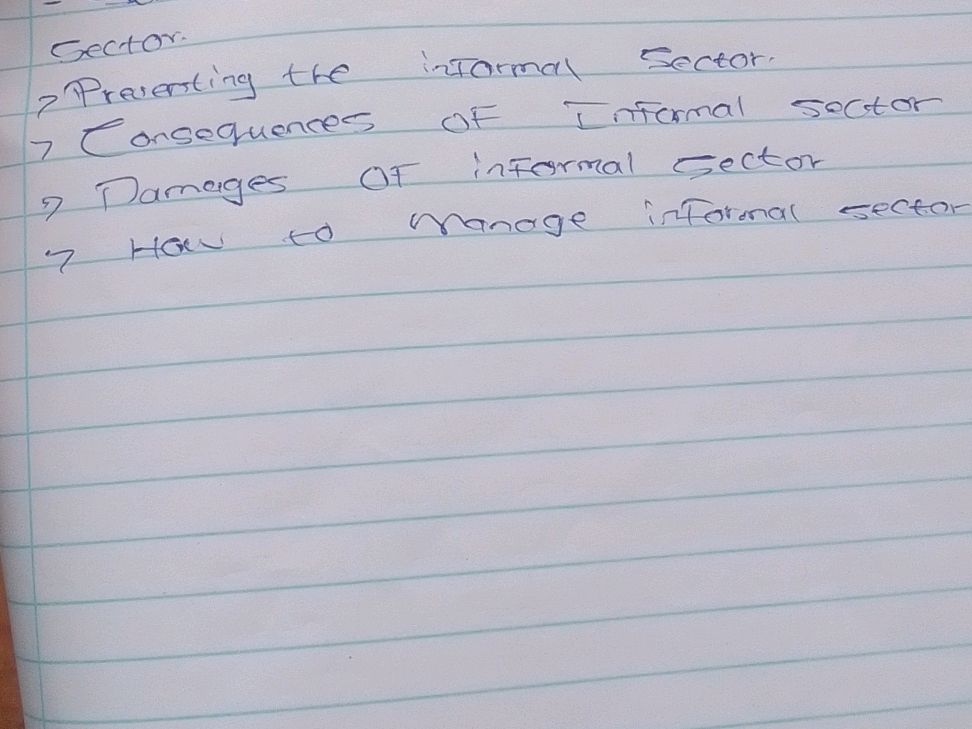 Sector.
> Preventing the informal Sector.
> Consequences OF Informal sector
> Damages OF informal sector
> How to manage informal sector